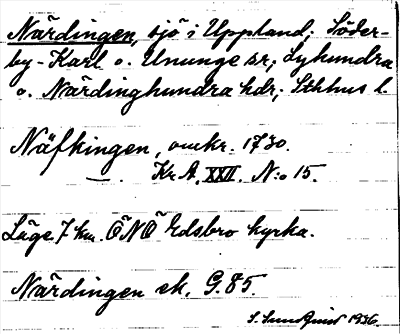 Närdingen, sjö i Uppland; Söder-
by-Karl o. Ununge sr; Lyhundra
o. Närdinghundra hdr; Sthlms l.
Näfkingen, omkr. 1730.
Kr. A. XXII. N:o 15.
Läge 7 km. ÖNÖ Edsbro kyrka.
Närdingen ek. G. 85.
S. Sundqvist 1936.